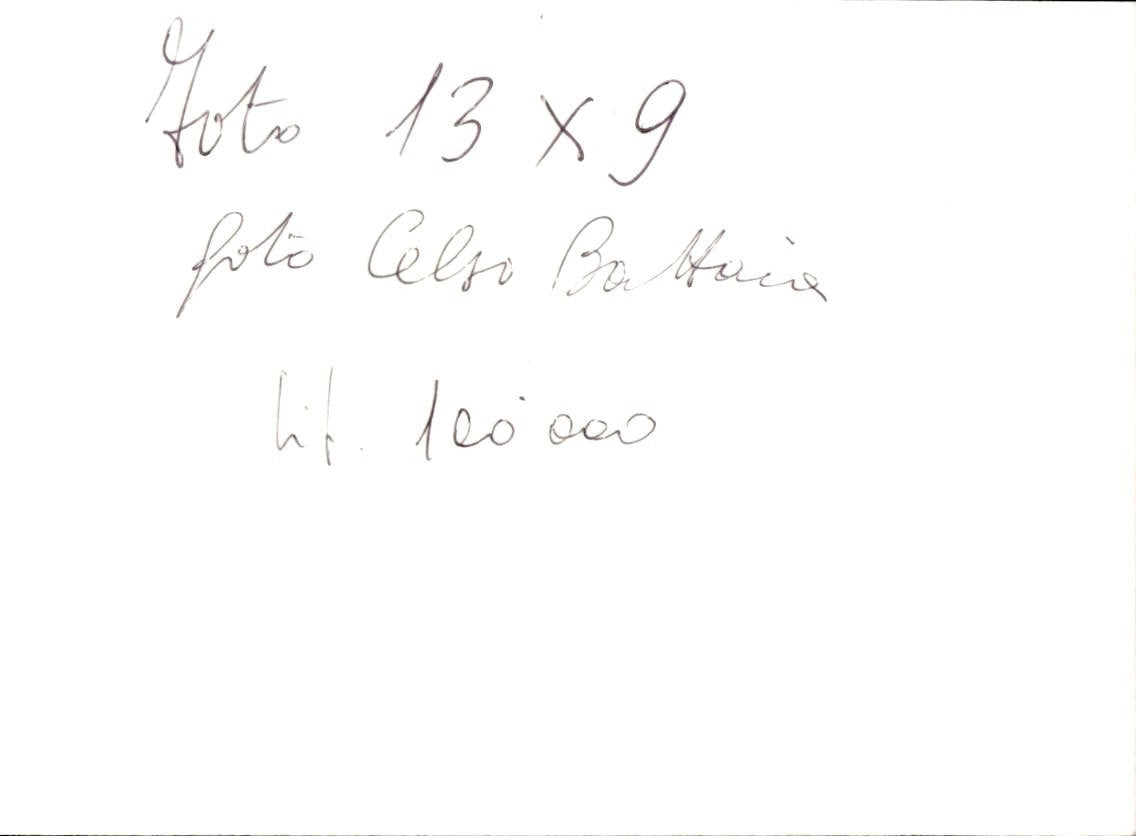 Foto 13 x 9
foto Celso Battaia
Lit. 100.000